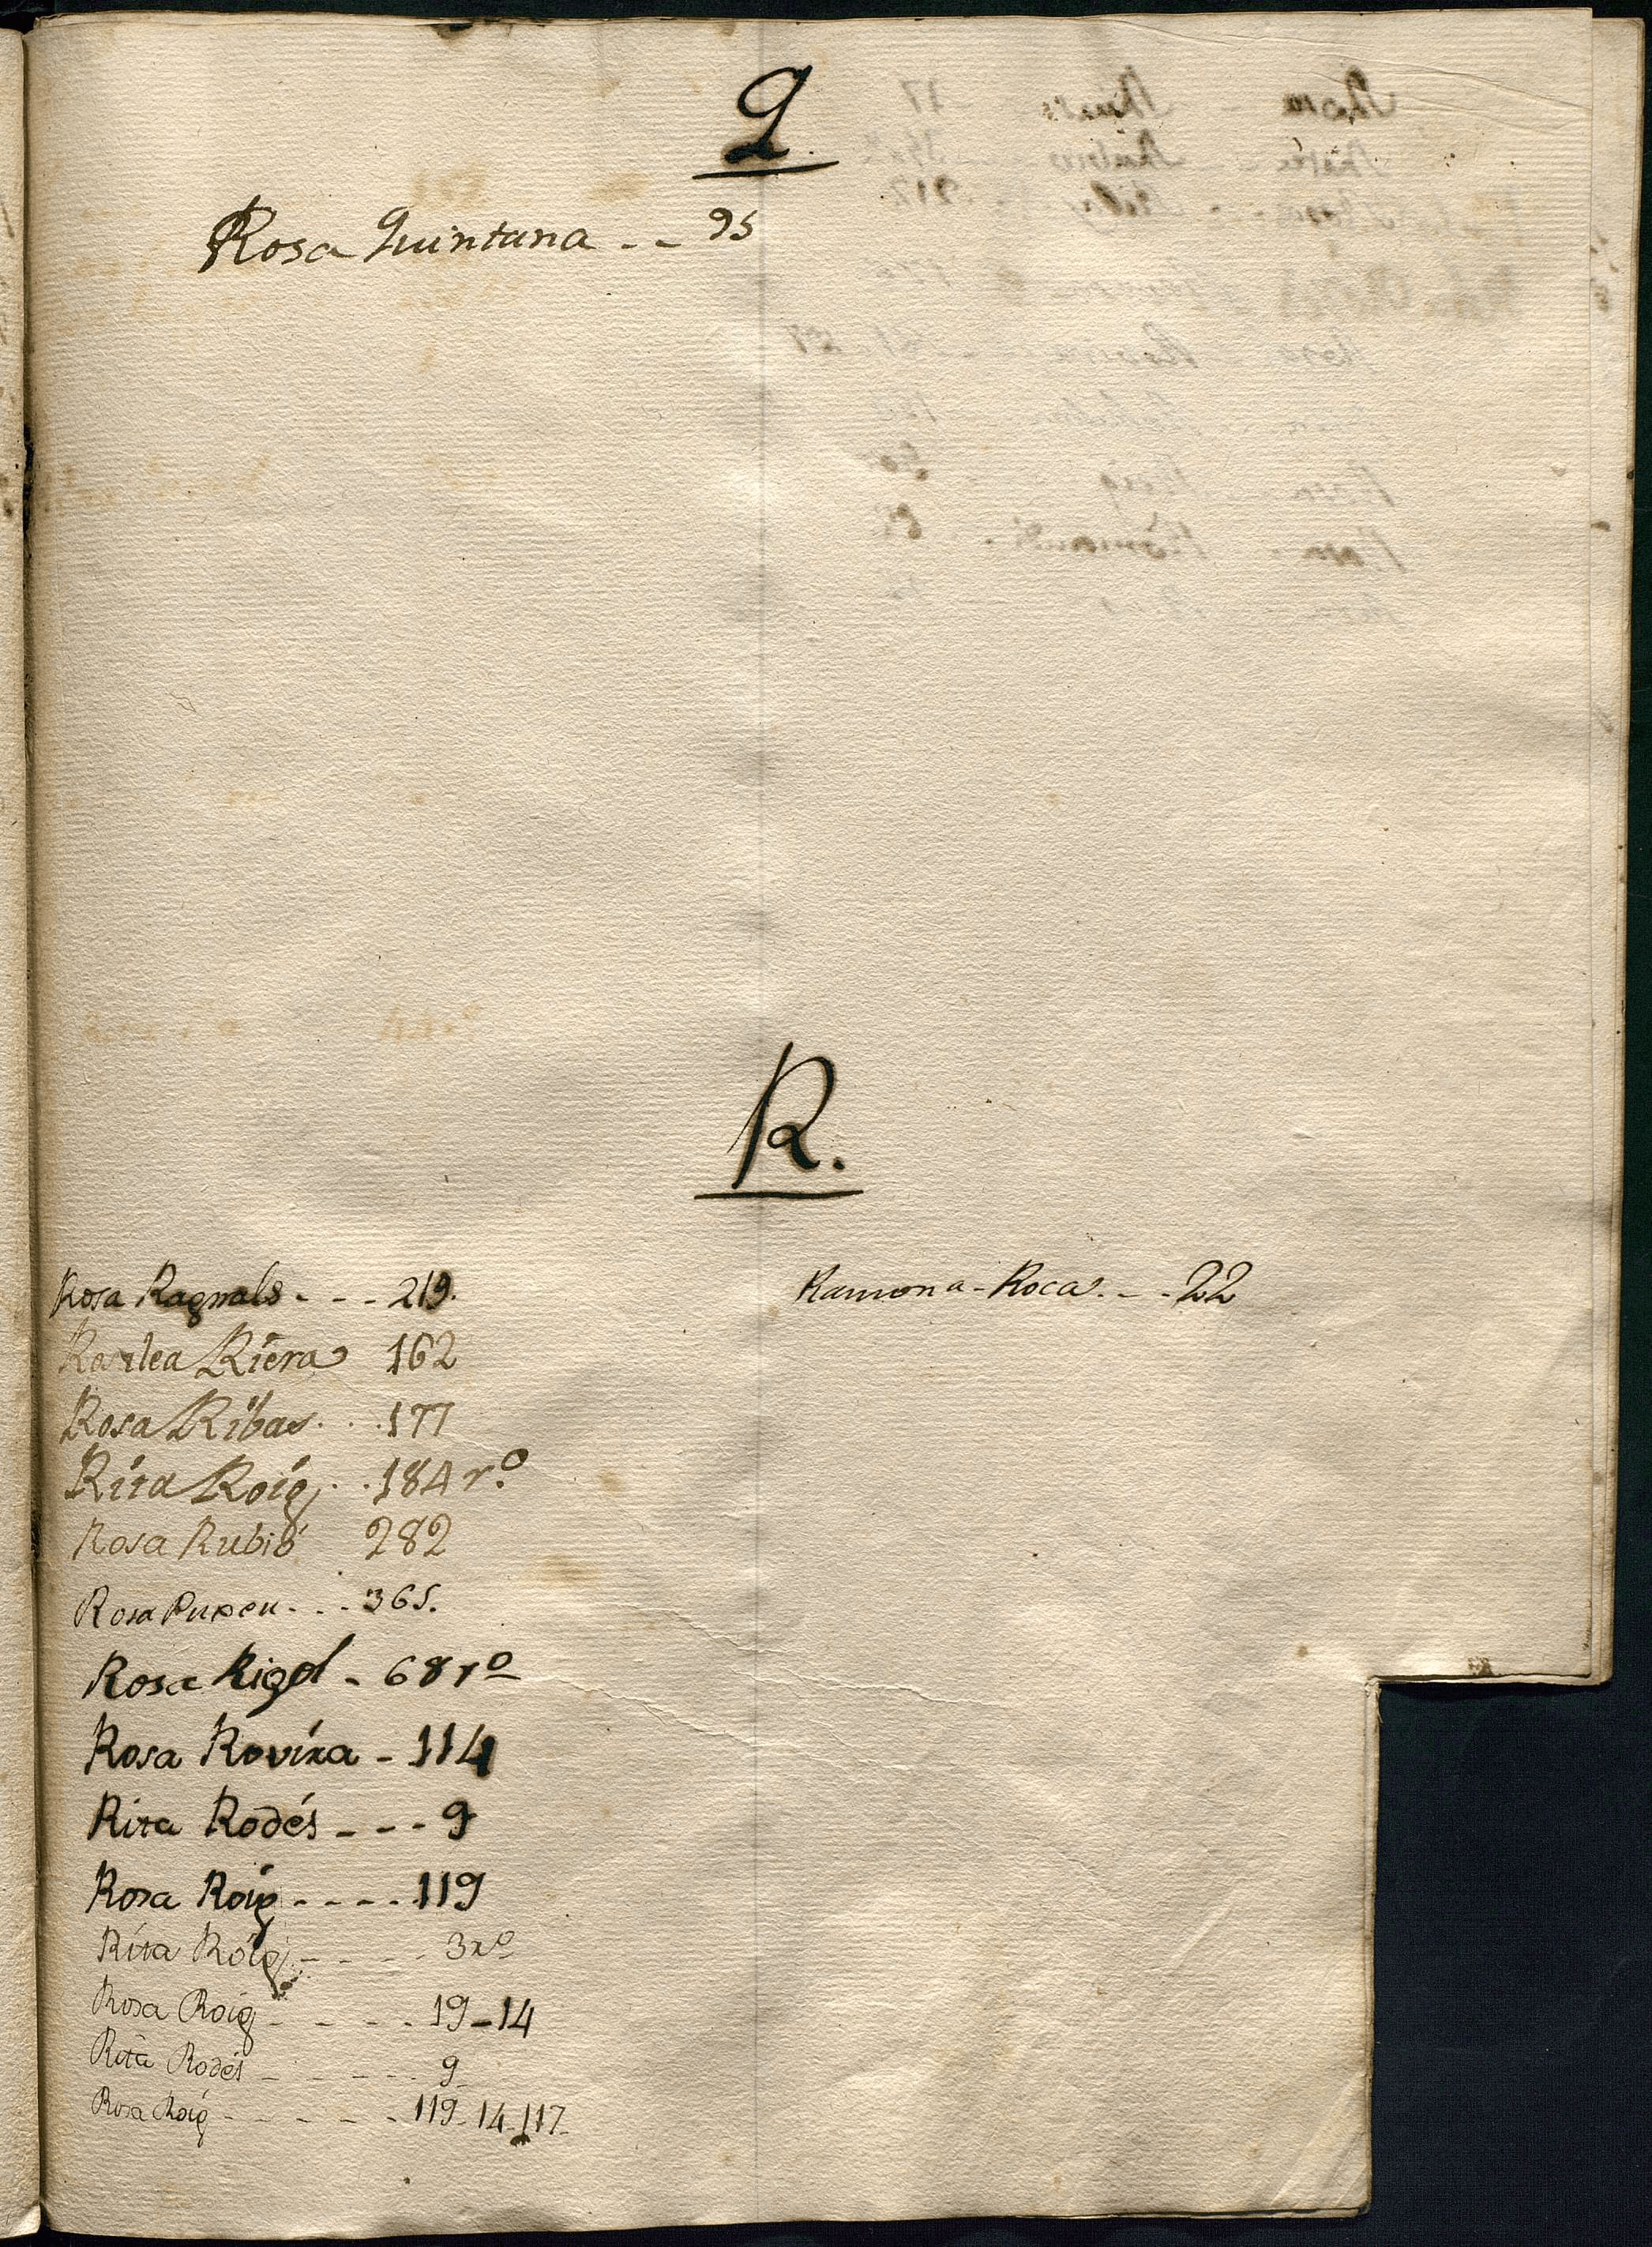 Q.
Rosa Quintana - - 95
R.
Rosa Ragnals - - - 219.
Rosalea Riera 162
Rosa Ribas . . 177
Rita Roig . . 184 rº
Rosa Rubió 282
Rosa . . . 365.
Rosa Rigol - 68 rº
Rosa Rovira - 114
Rita Rodés - - - 9
Rosa Roig - - - - 119
Rita Roig - - - - 3 rº
Rosa Roig - - - - 19-14
Rita Rodés - - - - - 9
Rosa Roig - - - - - 119-14-117-
Ramona-Roca. - - 22